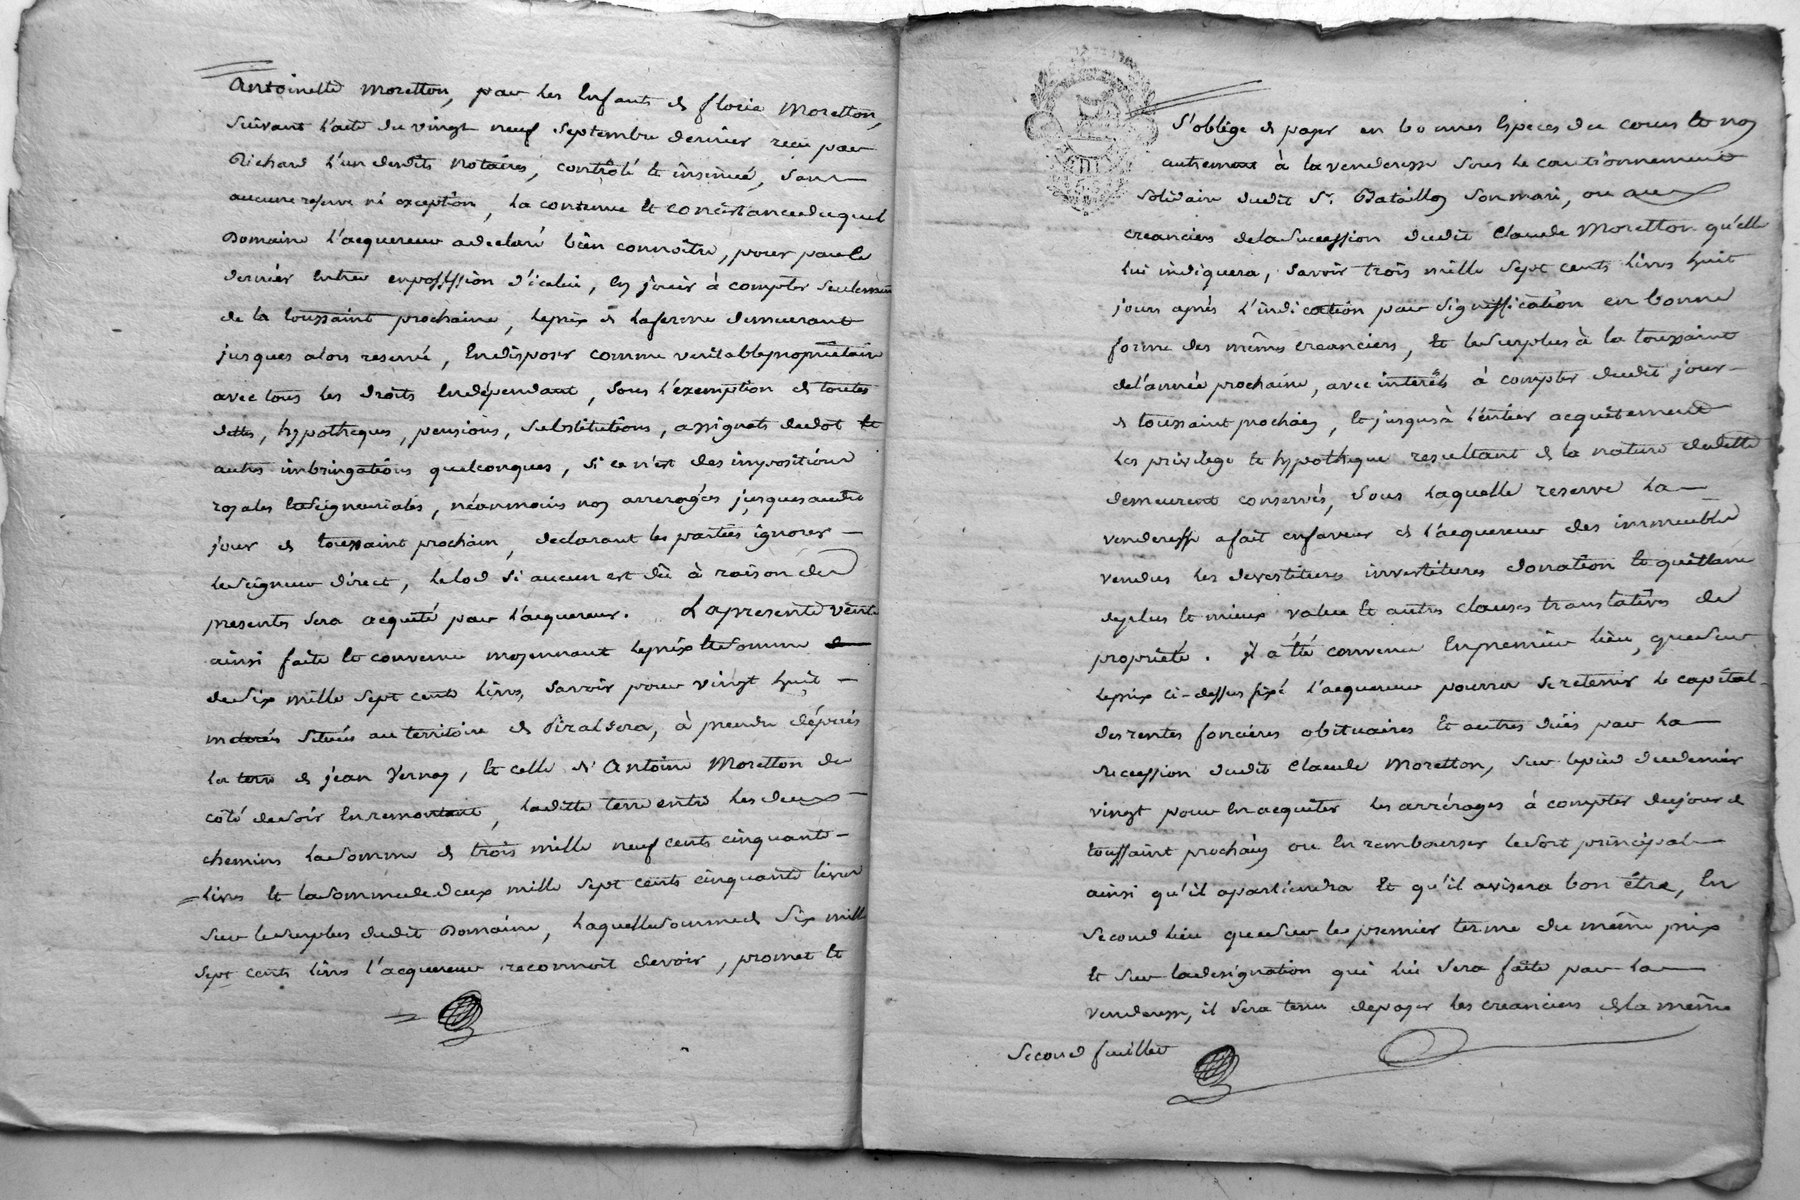 Antoinette Moretton, par les Enfants de florie Moretton,
suivant l'acte du vingt neuf Septembre dernier reçu par
Richard l'un desdits notaires, contrôlé et insinué, sans
aucune reserve ni exception, la contenue et consistance duquel
Domaine l'acquereur a declaré bien connoitre, pour par le
dernier entrer en possession d'icelui, en jouir à compter seulement
de la toussaint prochaine, le prix de la ferme demeurant
jusques alors reservé, en disposer comme veritable propriétaire
avec tous les droits en dépendant, sous l'exemption de toutes
dettes, hypotheques, pensions, substitutions, assignats de dot et
autres imbringations quelconques, si ce n'est des impositions
royales et seigneuriales, néanmoins non arreragées jusques audit
jour de toussaint prochain, declarant les parties ignorer
le seigneur direct, le lod si aucun est dû à raison des
presentes sera acquité par l'acquereur. La presente vente
ainsi faite et convenue moyennant le prix et somme
de six mille sept cents livres, savoir pour vingt huit
situés au territoire de Piralsera, à prendre dépuis
la terre de jean Vernay, et celle d'Antoine Moretton du
côté de soir en remontant, ladite terre entre les deux
chemins la somme de trois mille neuf cents cinquante
livres et la somme de deux mille sept cents cinquante livres
sur le surplus dudit Domaine, laquelle somme de six mille
sept cents livres l'acquereur reconnoit devoir, promet et
S'oblige de payer en bonnes Especes du cours et non
autrement à la venderesse sous le cautionnement
solidaire dudit Sr. Bataillon son mari, ou aux
creanciers de la succession dudit Claude Moretton qu'elle
lui indiquera, savoir trois mille sept cents livres huit
jours aprés l'indication par signiffication en bonne
forme des mêmes creanciers, et le surplus à la toussaint
de l'année prochaine, avec intérêts à compter dudit jour
de toussaint prochain, et jusqu'à l'entier acquitement
les privilege et hypotheque resultant de la nature de dette
demeurent conservés, sous laquelle reserve la
venderesse a fait en faveur de l'acquereur des immeubles
vendus les devestitures investitures donation et quittance
de plus et mieux value et autres clauses translatives de
propriété. il a été convenu en premier lieu, que sur
le prix ci-dessus fixé l'acquereur pourra se retenir le capital
des rentes foncières obituaires et autres duës par la
succession dudit Claude Moretton, sur le pied du denier
vingt pour en acquiter les arrérages à compter du jour de
toussaint prochain ou en rembourser le sort principal
ainsi qu'il apartiendra et qu'il avisera bon être, En
second lieu que sur le premier terme du même prix
et sur la designation qui lui sera faite par la
venderesse, il sera tenu de payer les creanciers de la même
Second feuillet